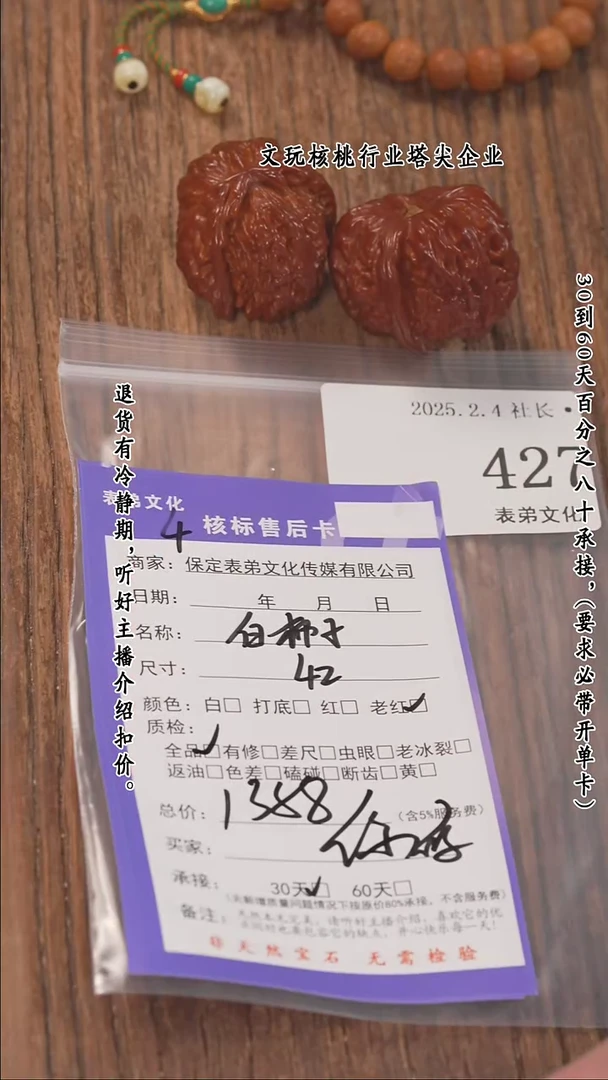 文玩核桃行业塔尖企业
30到60天百分之八十承接，（要求必带开单卡）
退货有冷静期，听好主播介绍扣价。
2025.2.4 社长·
427
表弟文化
表弟文化
4
核标售后卡
商家：保定表弟文化传媒有限公司
日期： 年 月 日
名称：白狮子
尺寸：42
颜色：白□ 打底□ 红□ 老红☑
质检：
全品☑有修□差尺□虫眼□老冰裂□
返油□色差□磕碰□断齿□黄□
总价：1388（含5%服务费）
买家：
承接： 30天☑ 60天□
（无新增质量问题情况下按原价80%承接，不含服务费）
备注：天然本无完美，请听好主播介绍，喜欢它的优
点同时也要包容它的缺点，开心快乐每一天！
非天然宝石 无需检验